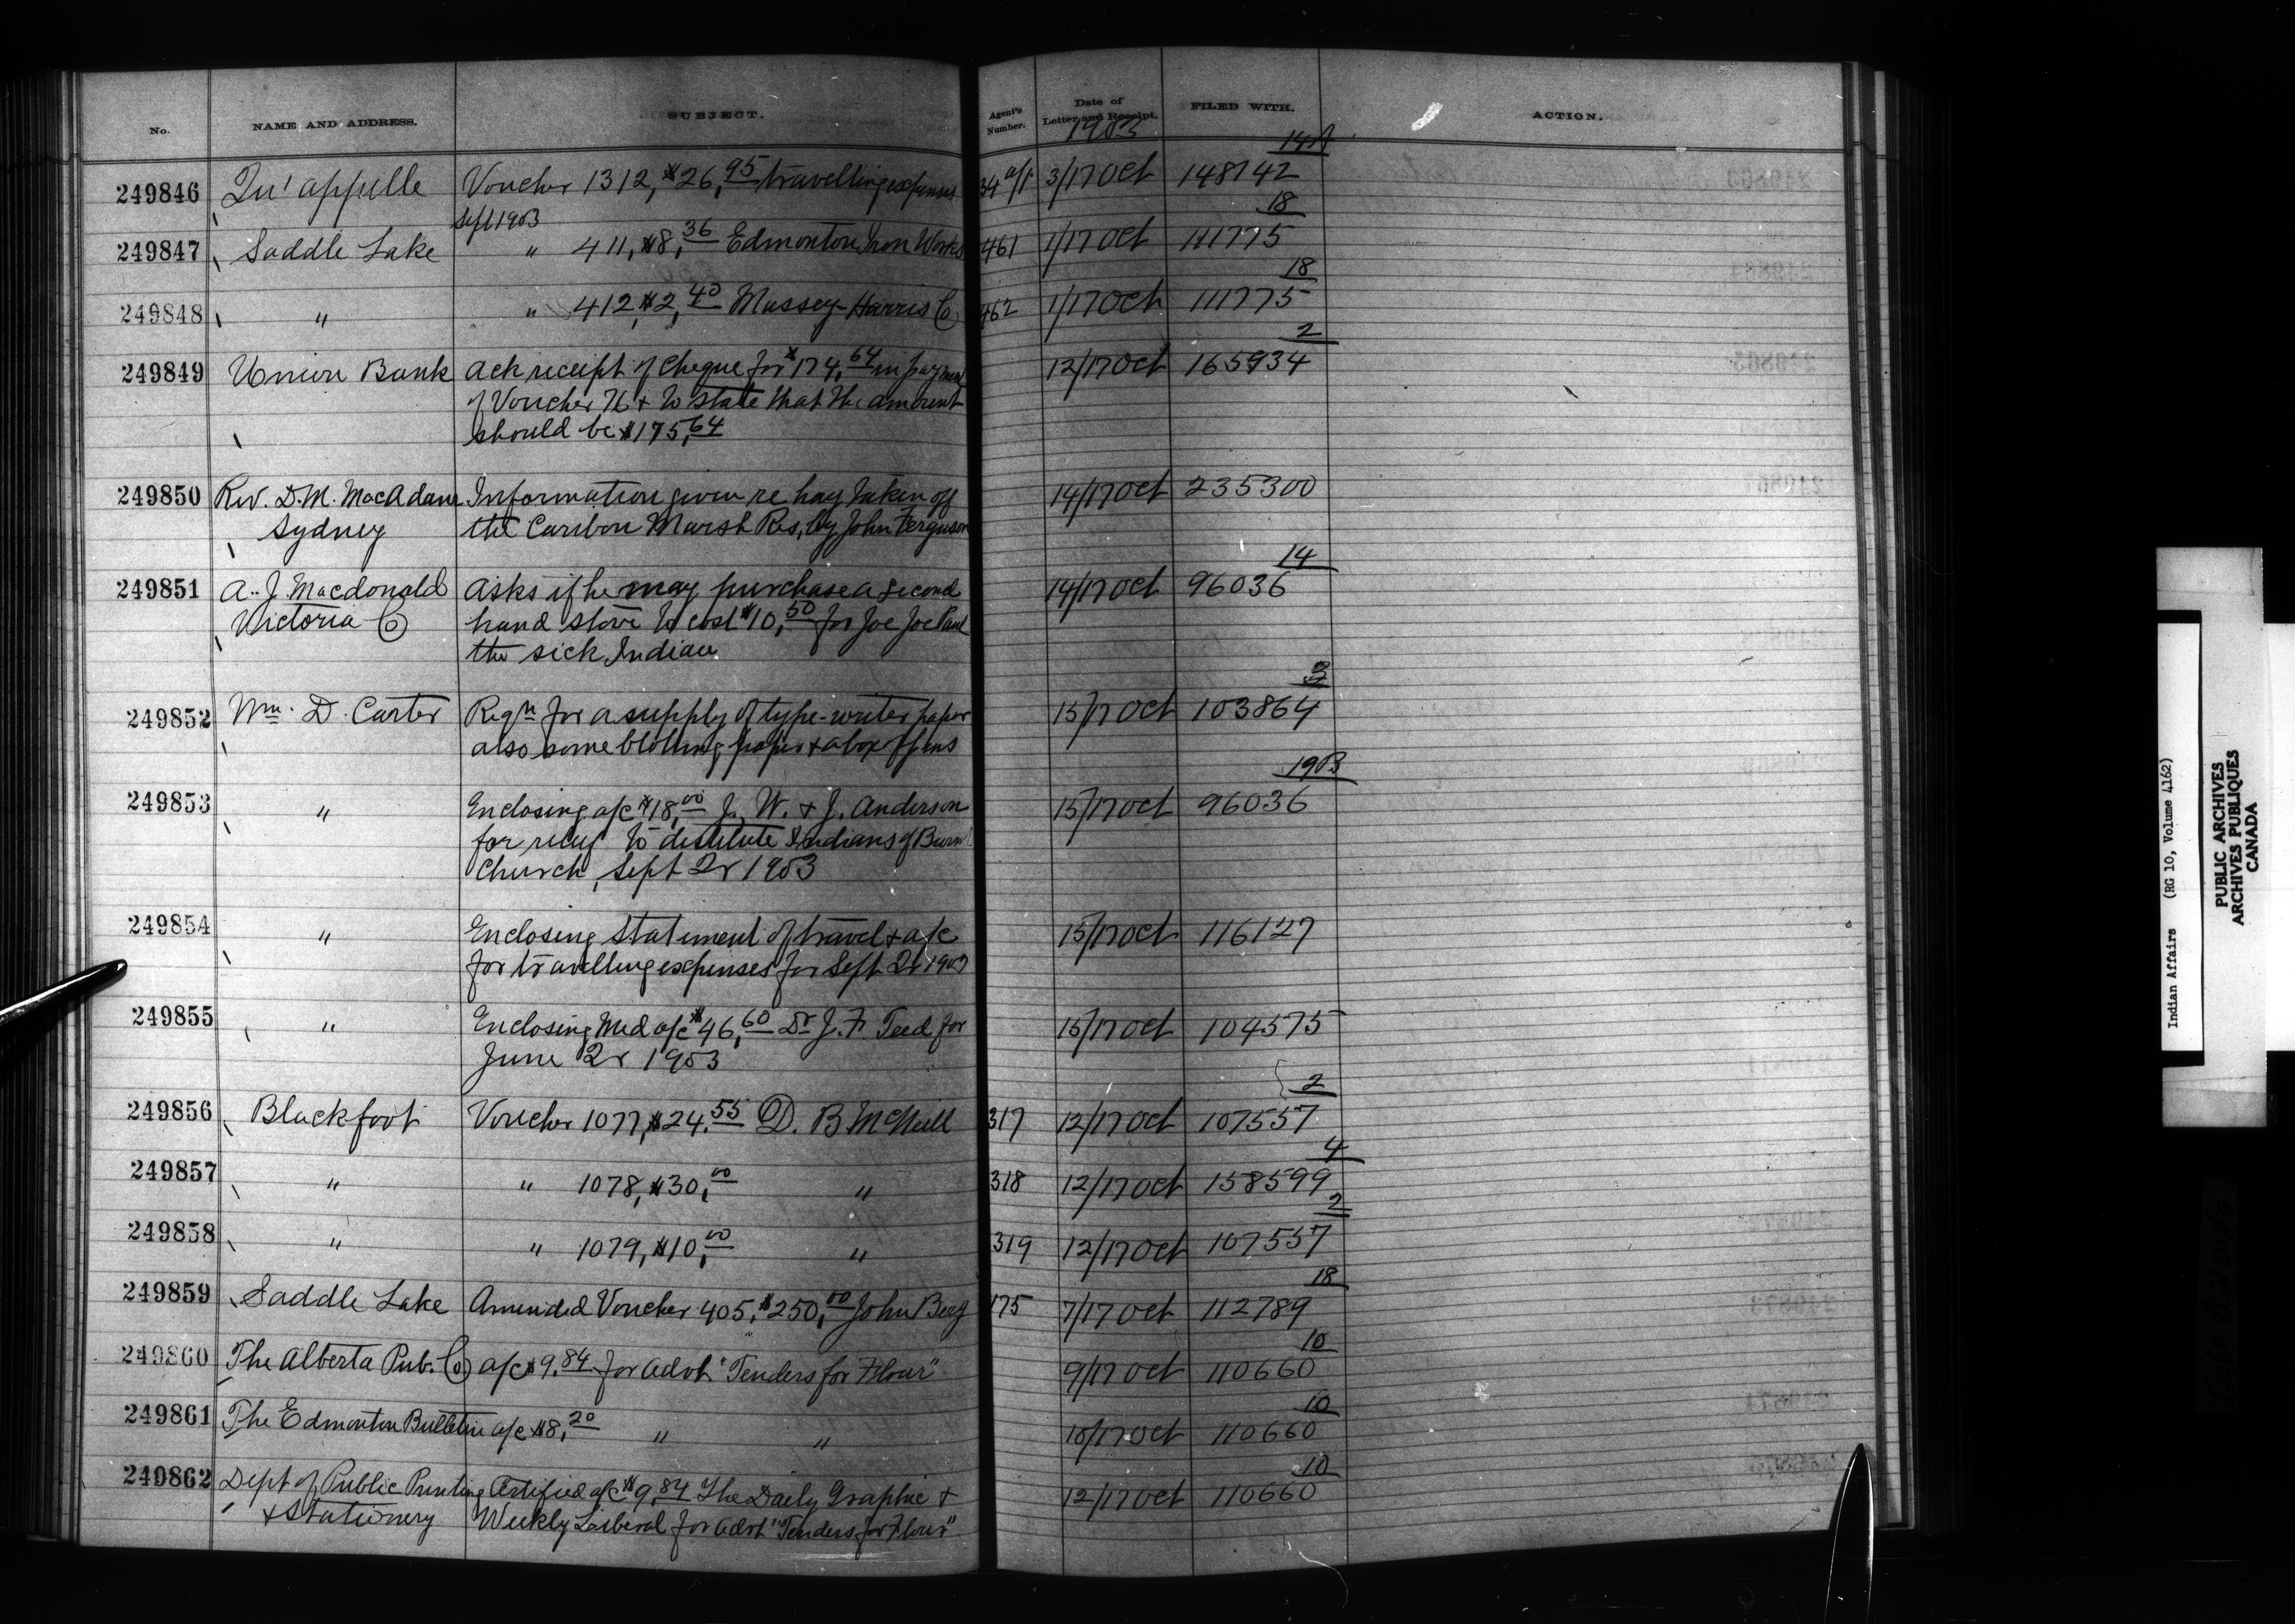 No. NAME AND ADDRESS. SUBJECT. Agent's Number. Date of Letter and Receipt. FILED WITH. ACTION.
1903
14A
249846 Qu'appelle Voucher 1312, $26,95 travelling expenses 34 3/17 Oct 148742
Sept 1903
18
249847 Saddle Lake " 411, $8,36 Edmonton Iron Works 461 1/17 Oct 111775
18
249848 " " 412, $2,40 Massey-Harris Co 462 1/17 Oct 111775
2
249849 Union Bank Ack receipt of cheque for $174,64 in payment 12/17 Oct 165934
of Voucher 76 & to state that the amount
should be $175,64
249850 Rev. D.M. MacAdam Information given re hay taken off 14/17 Oct 235300
Sydney the Caribou Marsh Res, by John Ferguson
14
249851 A. J. Macdonald Asks if he may purchase a second 14/17 Oct 96036
Victoria Co hand stove to cost $10,50 for Joe Joe Paul
the sick Indian
249852 Wm. D. Carter Reqn for a supply of type-writer paper 15/17 Oct 103864
also some blotting paper & a box of pens
19B
249853 " Enclosing a/c $18,00 J. W. & J. Anderson 15/17 Oct 96036
for relief to destitute Indians of Burnt
Church, Sept 2r 1903
249854 " Enclosing statement of travel & a/c 15/17 Oct 116127
for travelling expenses for Sept 2r 1903
249855 " Enclosing Med a/c $46,60 Dr J. F. Teed for 15/17 Oct 104575
June 2r 1903
2
249856 Blackfoot Voucher 1077, $24.55 D. B McNeill 317 12/17 Oct 107557
4
249857 " " 1078, $30,00 " 318 12/17 Oct 158599
2
249858 " " 1079, $10,00 " 319 12/17 Oct 107557
18
249859 Saddle Lake Amended Voucher 405, $250,00 John Berg 175 7/17 Oct 112789
10
249860 The Alberta Pub. Co a/c $9.84 for advt "Tenders for Flour" 9/17 Oct 110660
10
249861 The Edmonton Bulletin a/c $8,20 " " 10/17 Oct 110660
10
249862 Dept of Public Printing Certified a/c $9,84 The Daily Graphic & 12/17 Oct 110660
& Stationery Weekly Liberal for advt "Tenders for Flour"
Indian Affairs (RG 10, Volume 4162)
PUBLIC ARCHIVES
ARCHIVES PUBLIQUES
CANADA